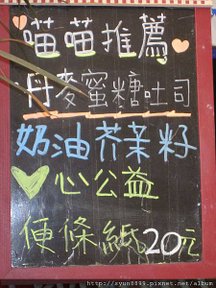 喵喵推薦
丹麥蜜糖吐司
奶油芥茉籽
心公益
便條紙20元
http://syun8449.pixnet.net/album